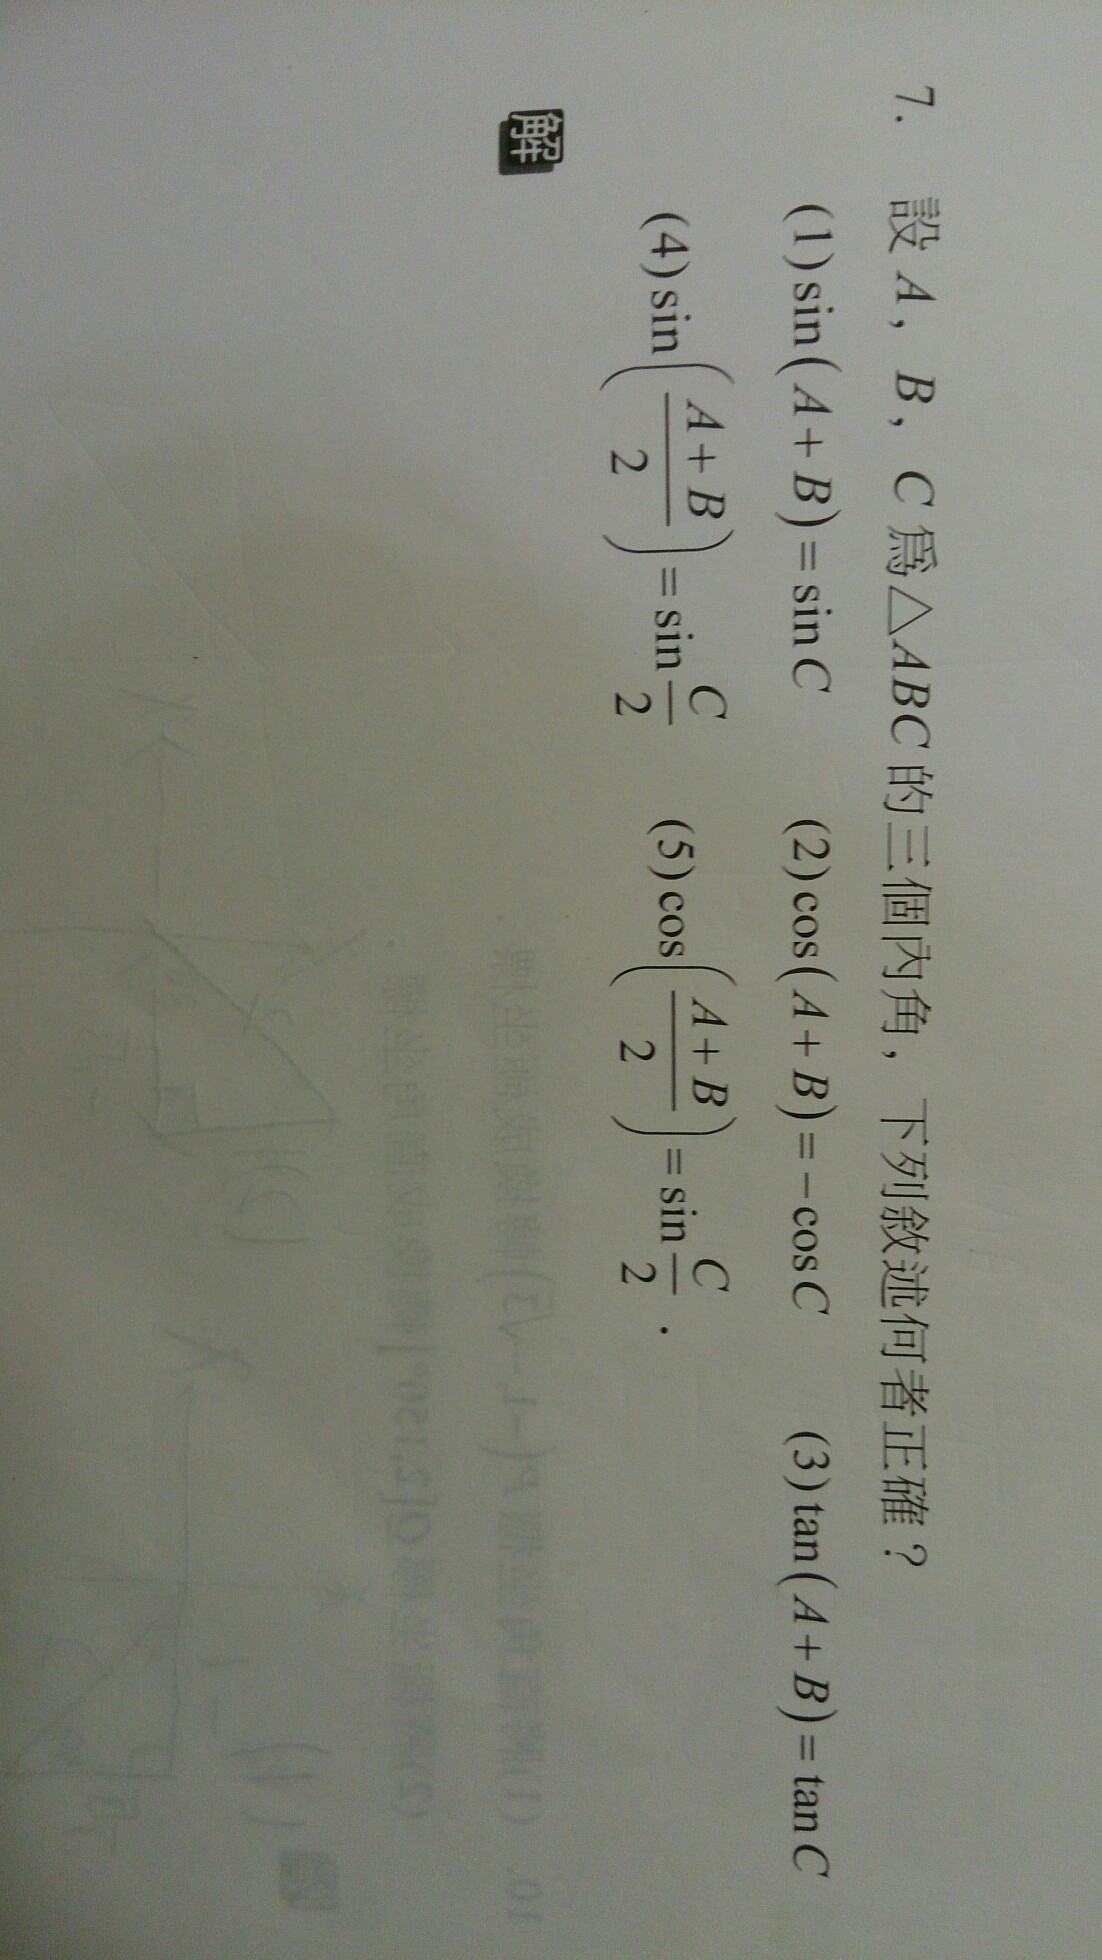 7. 設 A, B, C 爲△ABC 的三個內角, 下列敘述何者正確？
(1)sin(A+B)=sinC (2)cos(A+B)=-cosC (3)tan(A+B)=tanC
(4)sin((A+B)/2)=sin C/2 (5)cos((A+B)/2)=sin C/2.
解